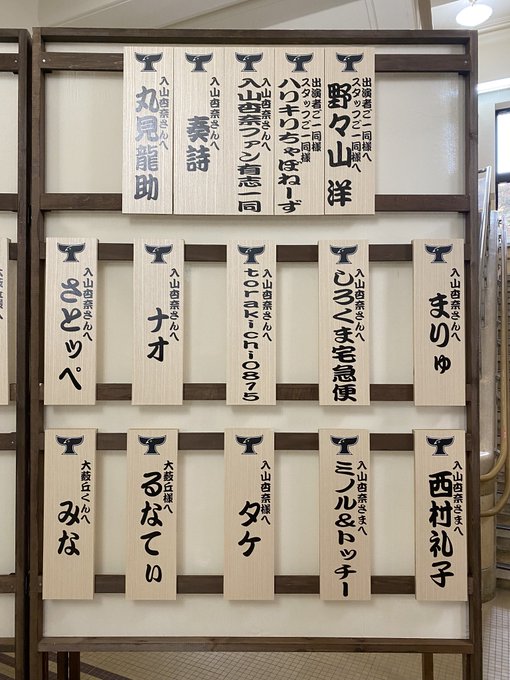 出演者ご一同様へ
スタッフご一同様へ
野々山 洋
出演者ご一同様
スタッフご一同様
ハリキリちゃぼねーず
入山杏奈さんへ
入山杏奈ファン有志一同
入山杏奈さんへ
奏詩
入山杏奈さんへ
丸見龍助
入山杏奈さんへ
まりゅ
入山杏奈さんへ
しろくま宅急便
入山杏奈さんへ
torakichi0815
入山杏奈さんへ
ナオ
入山杏奈さんへ
さとッペ
入山杏奈さまへ
西村礼子
入山杏奈さまへ
ミノル&トッチー
入山杏奈様へ
タケ
大薮丘様へ
るなてぃ
大薮丘くんへ
みな